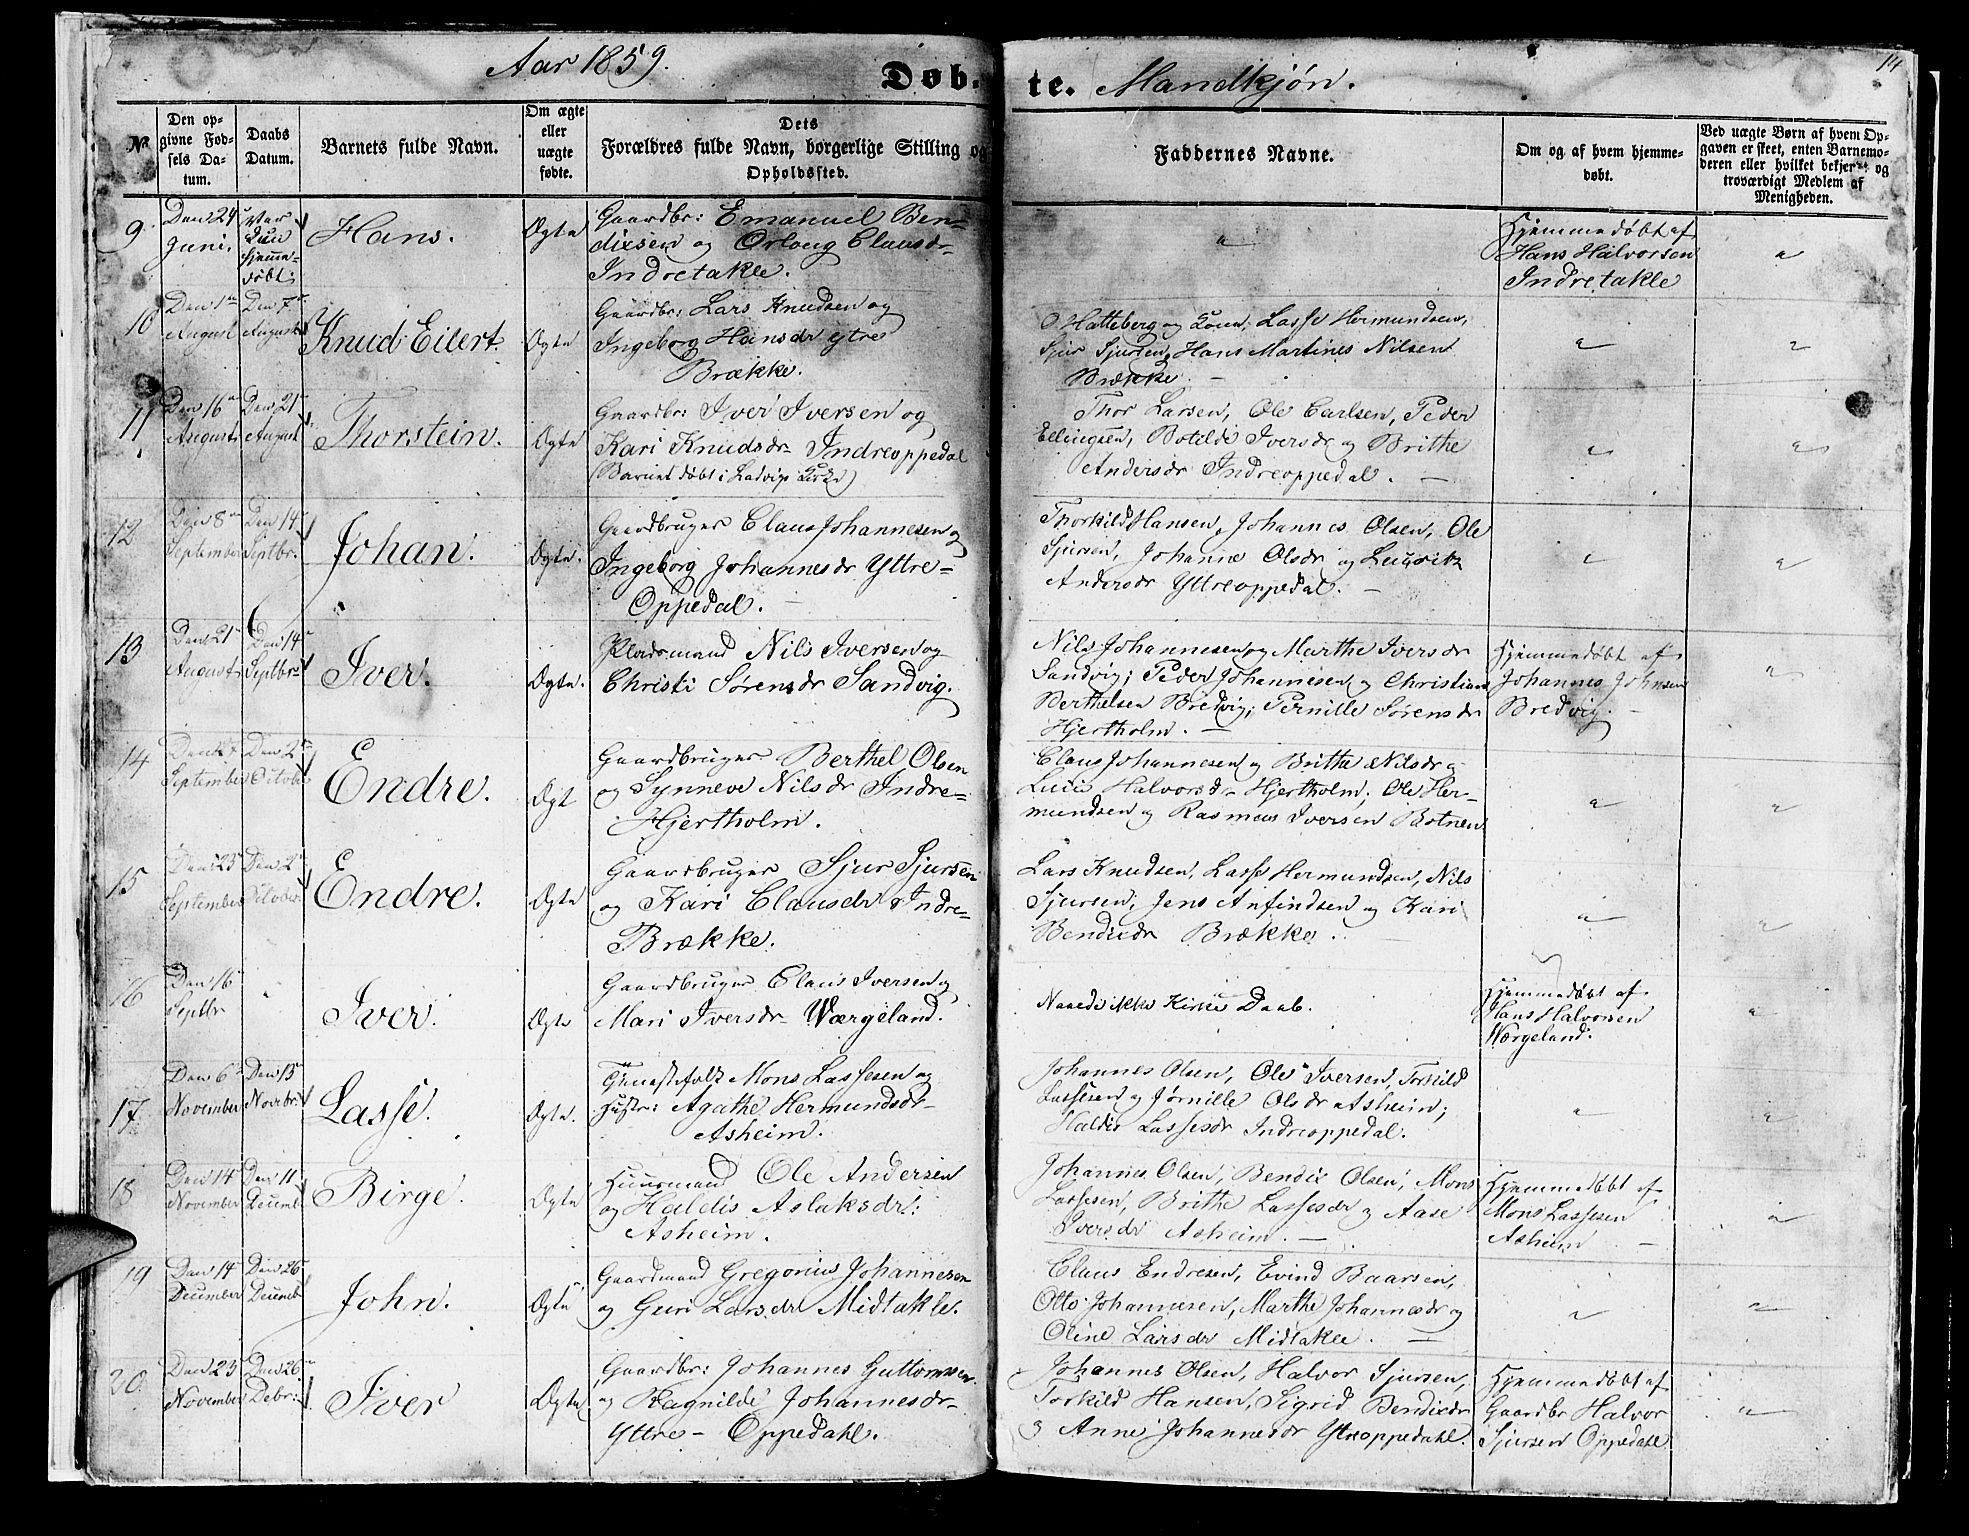 Aar 1859.
Døb-
te. Mandkjøn.
14
№
Den op-
givne Fød-
sels Da-
tum.
Daabs
Datum.
Barnets fulde Navn.
Om ægte
eller
uægte
fødte.
Dets
Forældres fulde Navn, borgerlige Stilling og
Opholdssted.
Faddernes Navne.
Om og af hvem hjemme-
døbt.
Ved uægte Børn af hvem Op-
gaven er skeet, enten Barnemo-
deren eller hvilket bekjendt og
troværdigt Medlem af
Menigheden.
9.
Den 24
Juni.
Var
kun
hjemme-
døbt.
Hans.
Ægte
Gaardbr: Emanuel Ben-
dixsen og Orloug Clausdr
Indretakle.
"
Hjemmedøbt af
Hans Halvorsen
Indretakle
"
10
Den 1
August
Den 7
August
Knud Eilert.
Ægte
Gaardbr: Lars Knudsen og
Ingeborg Hansdr ytre
Brække.
O Hatteberg og Kone, Lasse Hermundsen,
Sjur Sjursen, Hans Martines Nilsen
Brække.
"
"
11
Den 16
August
Den 21
August
Thorstein.
Ægte
Gaardbr: Iver Iversen og
Kari Knudsdr Indreoppedal
(Barnet døbt i Ladvigs Kirke)
Thor Larsen, Ole Carlsen, Peder
Ellingsen, Botilde Iversdr og Brithe
Andersdr Indreoppedal.
"
"
12
Den 8
September
Den 14
Septbr.
Johan.
Ægte.
Gaardbruger Claus Johannesen og
Ingeborg Johannesdr Yttre-
Oppedal.
Thorkild Hansen, Johannes Olsen, Ole
Sjursen, Johanne Olsdr og
Andersdr Yttreoppedal.
"
"
13
Den 21
August
Den 14
Septbr
Iver.
Ægte.
Pladsmand Nils Iversen og
Christi Sørensdr Sandvig.
Nils Johannesen og Marthe Iversdr
Sandvig; Peder Johannesen og Christian
Berthelsen Bredvig; Pernille Sørensdr
Hjertholm.
Hjemmedøbt af
Johannes Johnsen
Bredvig.
"
14
September
Den 2
October
Endre.
Ægt
Gaardbruger Berthel Olsen
og Synneve Nilsdr Indre-
Hjertholm.
Claus Johannesen og Brithe Nilsdr og
Halvorsdr Hjertholm; Ole Her-
mundsen og Rasmus Iversen Botnen
"
"
15
Den 25
September
Den 2
October
Endre.
Ægte
Gaardbruger Sjur Sjursen
og Kari Clausdr Indre-
Brække.
Lars Knudsen, Lasse Hermundsen, Nils
Sjursen, Jens Anfindsen og Kari
Bendixdr Brække.
"
"
16
Den 16
Septbr
Iver.
Ægte
Gaardbruger Claus Iversen og
Mari Iversdr Wærgeland.
Naaede ikke Kirke Daab.
Hjemmedøbt af
Hans Halvorsen
Wærgeland.
"
17
Den 6
November
Den 13
Novbr:
Lasse.
Ægte.
Tjenestefolk Mons Lassesen og
Hustr: Agathe Hermundsdr
Asheim.
Johannes Olsen, Ole Iversen, Torkild
Lassesen og Jørnille Olsdr Asheim;
Haldis Lassesdr Indreoppedal.
"
"
18
Den 14
November
Den 11
Decemb
Birge.
Ægte
Huusmand Ole Andersen
og Haldis Aslaksdr:
Asheim.
Johannes Olsen, Bendix Olsen, Mons
Lassesen, Brithe Lassesdr og Aase
Iversdr Asheim.
Hjemmedøbt af
Mons Lassesen
Asheim
"
19
Den 14
December
Den 26
Decemb
John.
Ægte
Gaardmand Gregorius Johannesen
og Guri Larsdr Midtakle.
Claus Endresen, Evind Baarsen,
Otto Johannesen, Marthe Johannesdr og
Oline Larsdr Midtakle.
"
"
20.
Den 23
November
Den 26
Debr:
Iver
Ægte
Gaardbr: Johannes Guttomsen
og Ragnilde Johannesdr
Yttre- Oppedahl.
Johannes Olsen, Halvor Sjursen,
Torkild Hansen, Sigrid Bendixdr
og Anne Johannesdr Ytreoppedahl.
Hjemmedøbt af
Gaardbr Halvor
Sjursen Oppedahl
"